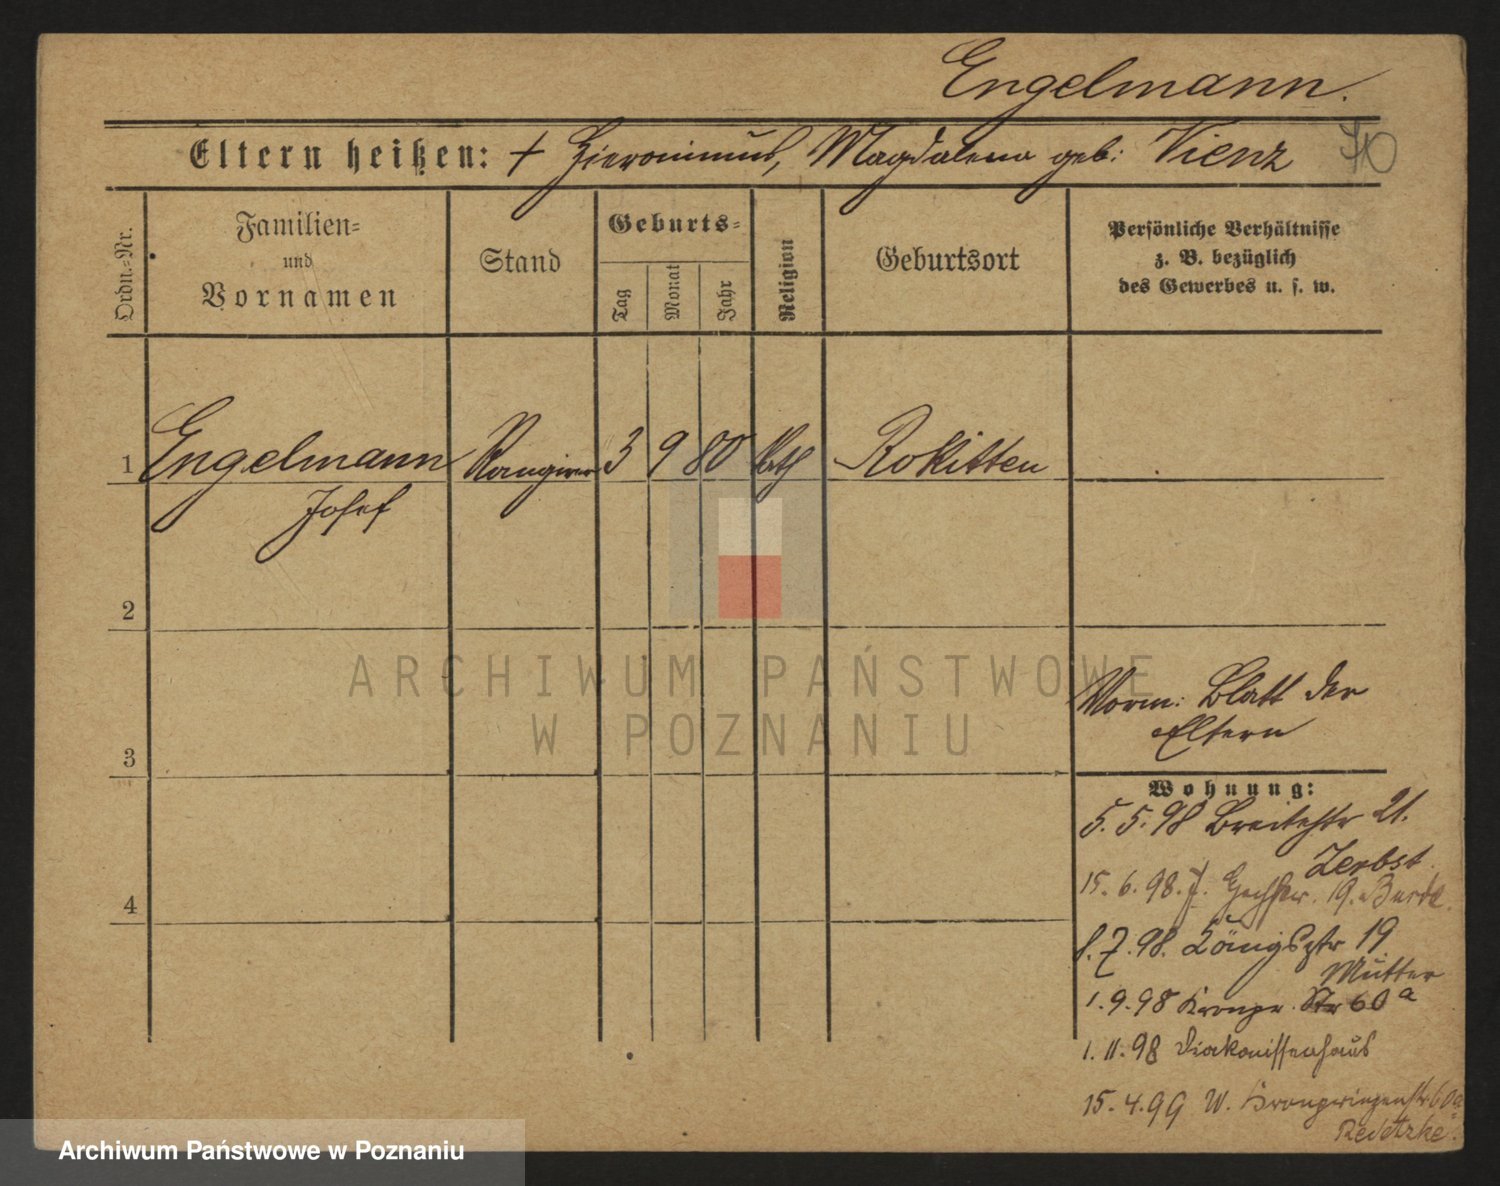 Engelmann.
Eltern heißen: + Hieronimus, Magdalena geb: Vienz
Ordn.=Nr.
Familien=
und
Vornamen
Stand
Geburts=
Tag
Monat
Jahr
Religion
Geburtsort
Persönliche Verhältnisse
z. B. bezüglich
des Gewerbes u. s. w.
1 Engelmann Rangirer 3 9 80 kth Rokitten
Josef
2
3
4
Vorm: Blatt der
Eltern
Wohnung:
5. 5. 98 Breitestr 21.
Zerbst
15. 6. 98. 19.
8. 7. 98. Königsstr 19
Mutter
1. 9. 98 Kronpr. Str 60 a
1. 11. 98 Diakonissenhaus
15. 4. 99 W. Kronprinzenstr 60a
Redetzke
ARCHIWUM PAŃSTWOWE
W POZNANIU
Archiwum Państwowe w Poznaniu